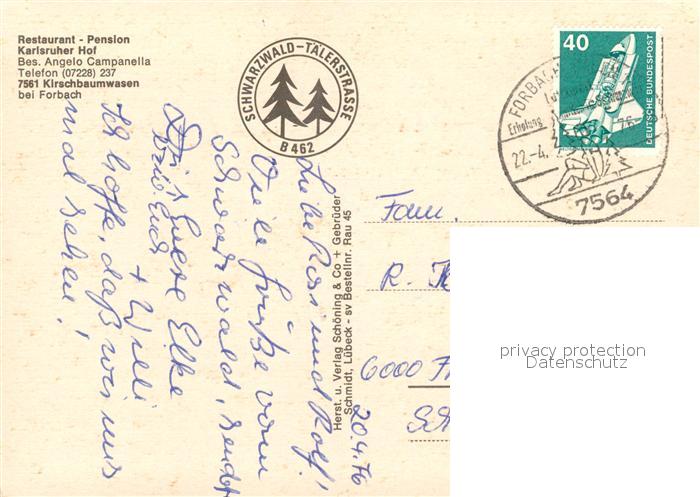 Restaurant - Pension
Karlsruher Hof
Bes. Angelo Campanella
Telefon (07228) 237
7561 Kirschbaumwasen
bei Forbach
SCHWARZWALD-TÄLERSTRASSE
B 462
40
DEUTSCHE BUNDESPOST
FORBACH
Erholung
22.-4.
76
7564
20.4.76
Liebe Rosi und Rolf!
Viele Grüße vom
Schwarzwald, sendet
Euch
Eure Elke
+ Willi
Ich hoffe, daß wir uns
mal sehen!
Herst. u. Verlag Schöning & Co + Gebrüder
Schmidt, Lübeck - sv Bestellnr. Rau 45
Fam.
R.
6000
privacy protection
Datenschutz